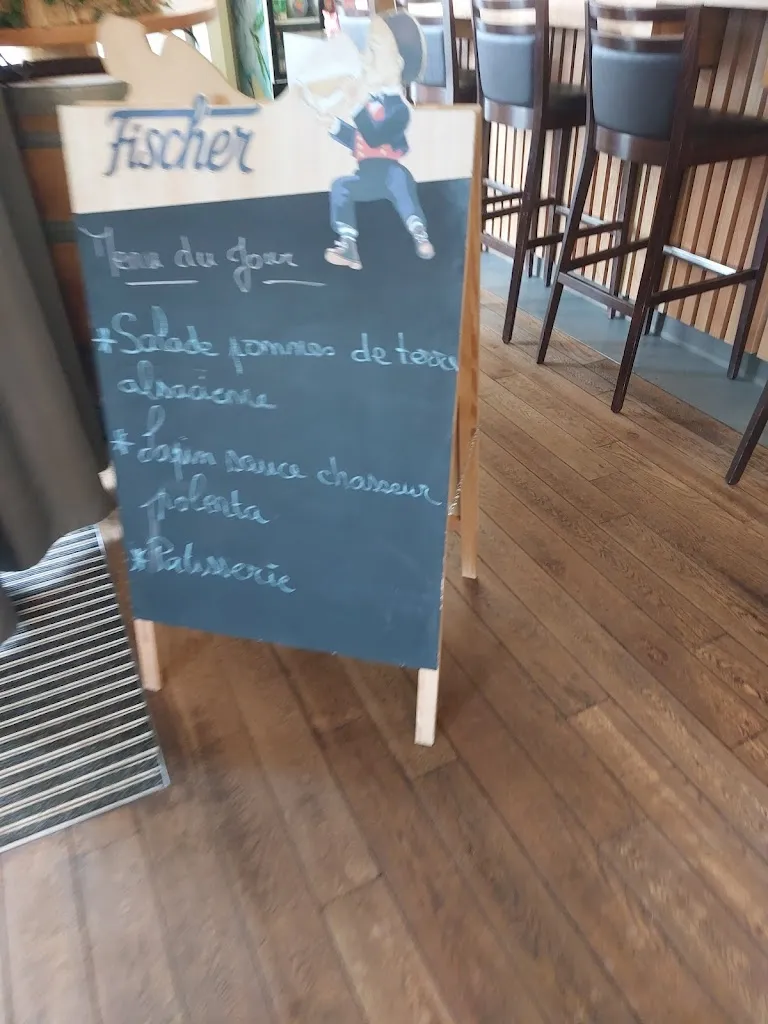 Fischer
Menu du Jour
* Salade pommes de terre
alsacienne
* Lapin sauce chasseur
polenta
* Patisserie